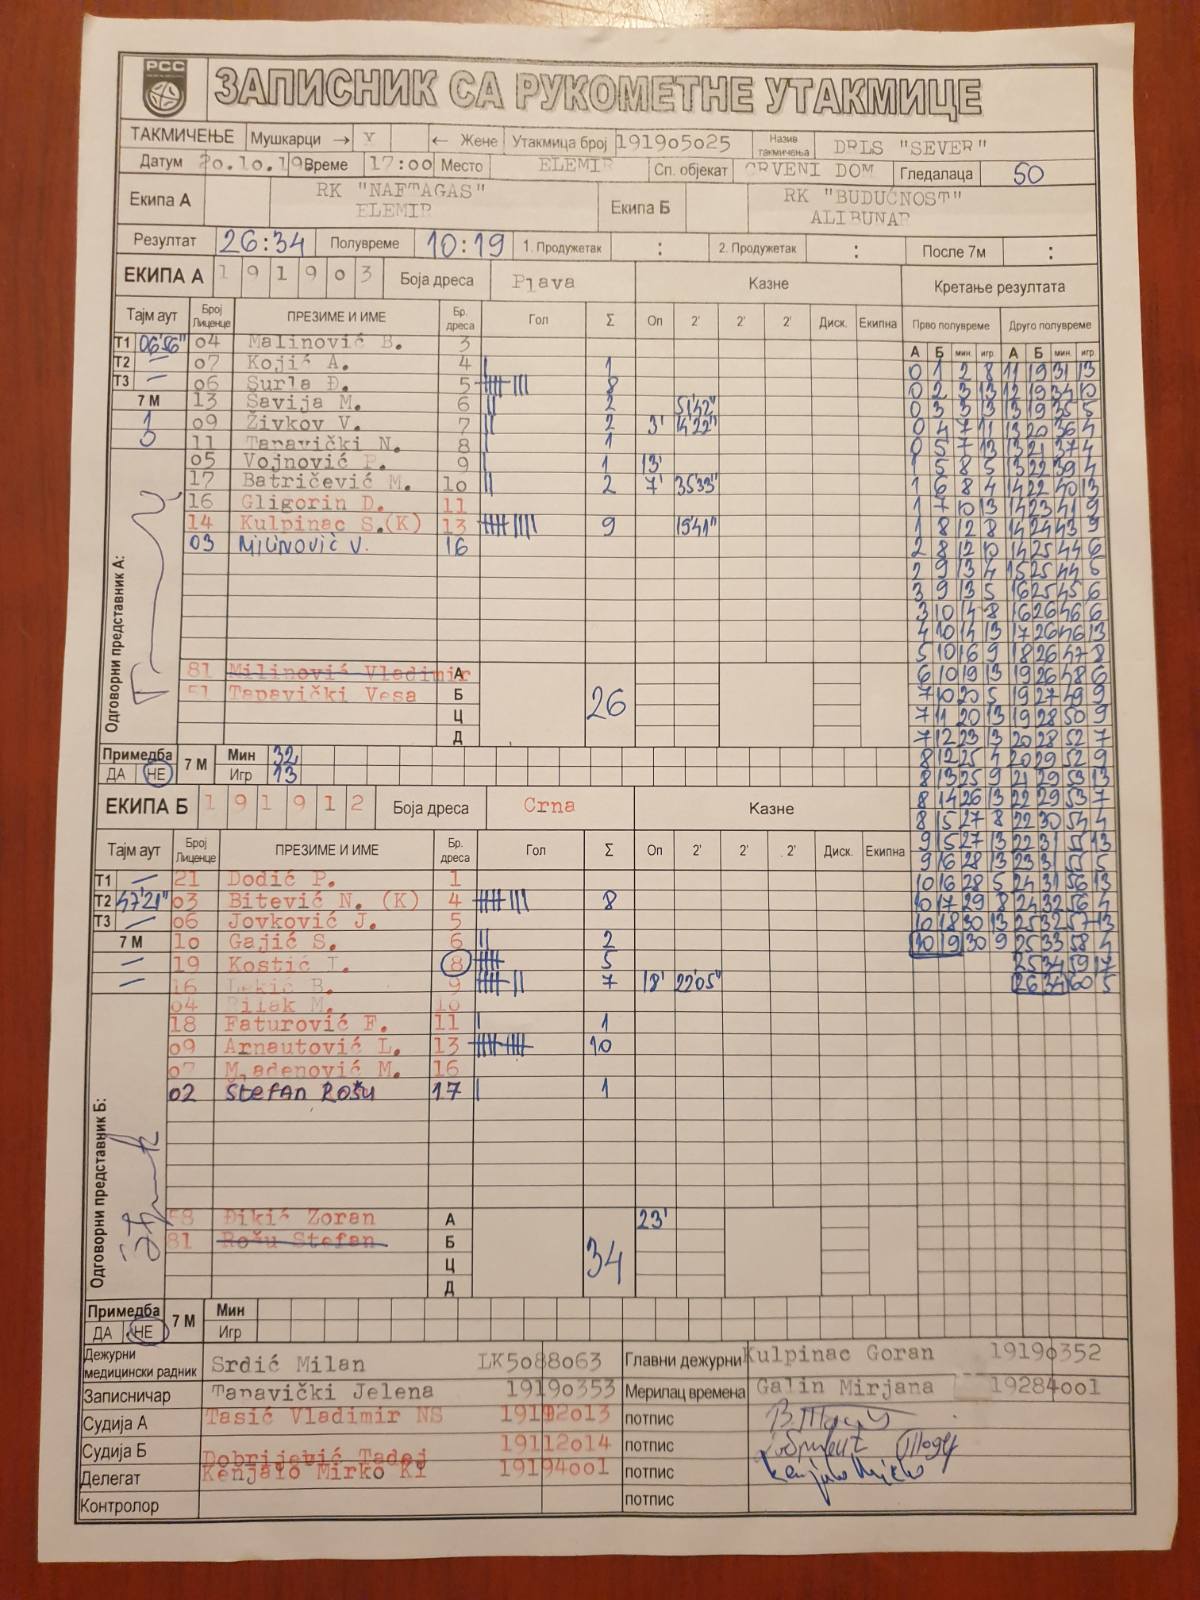 РСС
ЗАПИСНИК СА РУКОМЕТНЕ УТАКМИЦЕ
ТАКМИЧЕЊЕ Мушкарци → X ← Жене Утакмица број 191905025 Назив такмичења DRLS "SEVER"
Датум 20.10.19 Време 17:00 Место ELEMIR Сп. објекат CRVENI DOM Гледалаца 50
Екипа А RK "NAFTAGAS" ELEMIR Екипа Б RK "BUDUĆNOST" ALIBUNAR
Резултат 26:34 Полувреме 10:19 1. Продужетак : 2. Продужетак : После 7м :
ЕКИПА А 1 9 1 9 0 3 Боја дреса Plava Казне Кретање резултата
Тајм аут Број Лиценце ПРЕЗИМЕ И ИМЕ Бр. дреса Гол Σ Оп 2' 2' 2' Диск. Екипна Прво полувреме Друго полувреме
А Б мин. игр. А Б мин. игр.
Т1 06'56" 04 Malinović B. 3
Т2 — 07 Kojić A. 4 | 1
Т3 — 06 Surla Đ. 5 8
7 М 13 Savija M. 6 || 2 51'42"
1 09 Živkov V. 7 || 2 3' 14'22"
11 Tapavički N. 8 | 1
05 Vojnović P. 9 | 1 13'
17 Batričević M. 10 || 2 7' 35'33"
16 Gligorin D. 11
14 Kulpinac S.(K) 13 9 15'41"
03 MILINOVIĆ V. 16
Одговорни представник А:
81 Milinović Vladimir А
51 Tapavički Vesa Б 26
Ц
Д
Примедба 7 М Мин 32
ДА НЕ Игр 13
0 1 2 8 11 19 31 13
0 2 3 13 12 19 34 10
0 3 3 13 13 19 35 5
0 4 7 11 13 20 36 4
0 5 7 13 13 21 37 4
1 5 8 5 13 22 39 4
1 6 8 4 14 22 40 13
1 7 10 13 14 23 41 9
1 8 12 8 14 24 43 9
2 8 12 10 14 25 44 6
2 9 13 4 15 25 44 6
3 9 13 5 16 25 45 6
3 10 14 8 16 26 46 6
4 10 14 13 17 26 46 13
5 10 16 9 18 26 47 8
6 10 19 13 19 26 48 6
7 10 20 5 19 27 49 9
7 11 20 13 19 28 50 9
7 12 23 13 20 28 52 7
8 12 25 4 20 29 52 9
8 13 25 9 21 29 53 13
8 14 26 13 22 29 53 7
8 15 27 8 22 30 54 4
9 15 27 13 22 31 55 13
9 16 28 13 23 31 55 5
10 16 28 5 24 31 56 13
10 17 29 8 24 32 56 4
10 18 30 13 25 32 57 13
10 19 30 9 25 33 58 4
25 34 59 17
26 34 60 5
ЕКИПА Б 1 9 1 9 1 2 Боја дреса Crna Казне
Тајм аут Број Лиценце ПРЕЗИМЕ И ИМЕ Бр. дреса Гол Σ Оп 2' 2' 2' Диск. Екипна
Т1 — 21 Dodić P. 1
Т2 47'21" 03 Bitević N. (K) 4 8
Т3 — 06 Jovković J. 5
7 М 10 Gajić S. 6 || 2
— 19 Kostić I. 8 5
— 16 Lekić B. 9 7 18' 22'05"
04 Bilak M. 10
18 Faturović F. 11 | 1
09 Arnautović L. 13 10
07 Mladenović M. 16
02 ŠtefAN ROŠU 17 | 1
Одговорни представник Б:
58 Đikić Zoran А 23'
81 Rošu Stefan Б 34
Ц
Д
Примедба 7 М Мин
ДА НЕ Игр
Дежурни медицински радник Srdić Milan LK5088063 Главни дежурни Kulpinac Goran 19190352
Записничар Tapavički Jelena 19190353 Мерилац времена Galin Mirjana 19284001
Судија А Tasić Vladimir NS 19192013 потпис
Судија Б Dobrijević Tadej 19112014 потпис
Делегат Kenjalo Mirko KI 19194001 потпис
Контролор потпис